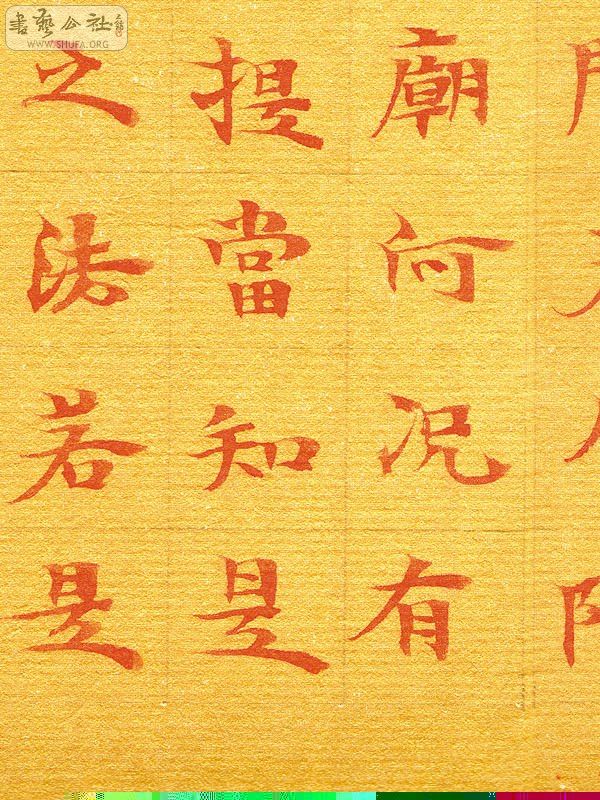 廟何況有
提當知是
之法若是
書藝公社
WWW.SHUFA.ORG